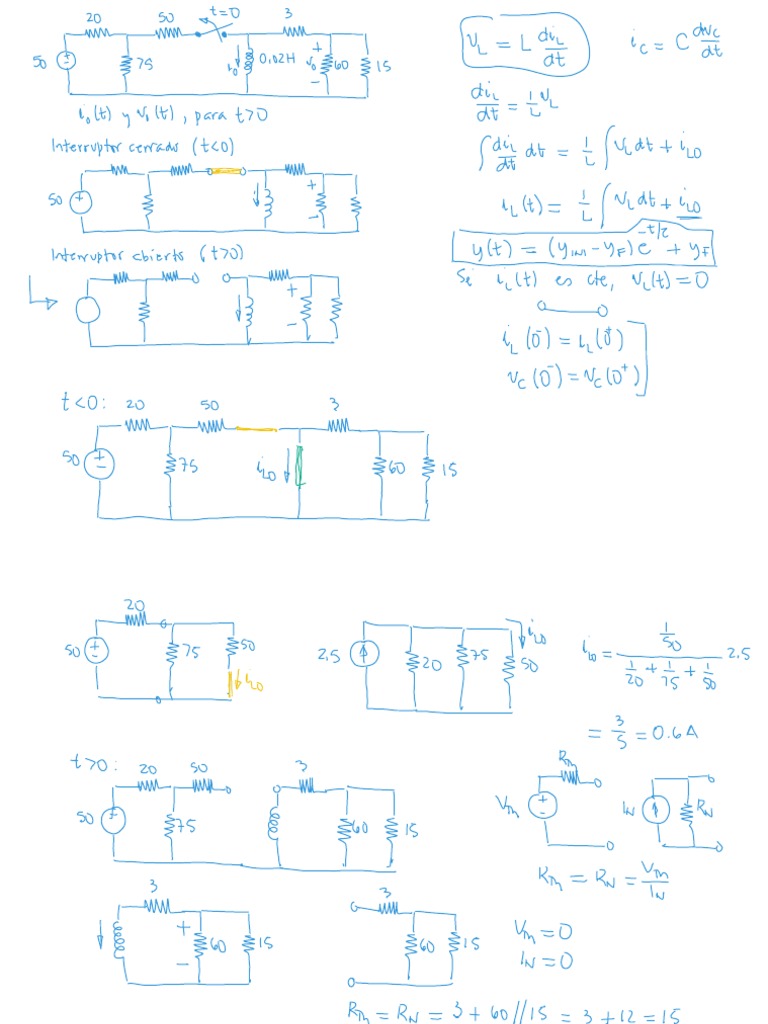 20 50 t=0 3
50 75 i₀ 0,02H v₀ 60 15
i₀(t) y v₀(t), para t>0
Interruptor cerrado (t<0)
50
Interruptor abierto (t>0)
v_L = L di_L/dt
i_C = C dv_C/dt
di_L/dt = 1/L v_L
∫ di_L/dt dt = 1/L ∫ v_L dt + i_L0
i_L(t) = 1/L ∫ v_L dt + i_L0
y(t) = (y_INI - y_F) e^(-t/τ) + y_F
Si i_L(t) es cte, v_L(t) = 0
i_L(0⁻) = i_L(0⁺)
v_C(0⁻) = v_C(0⁺)
t<0: 20 50 3
50 75 i_L0 60 15
20
50 75 50 i_L0
i_L0
2.5 20 75 50
i_L0 = (1/50) / (1/20 + 1/75 + 1/50) 2.5
= 3/5 = 0.6 A
t>0: 20 50 3
50 75 60 15
R_Th
V_Th I_N R_N
R_Th = R_N = V_Th/I_N
3
60 15
3
60 15
V_Th = 0
I_N = 0
R_Th = R_N = 3 + 60//15 = 3 + 12 = 15